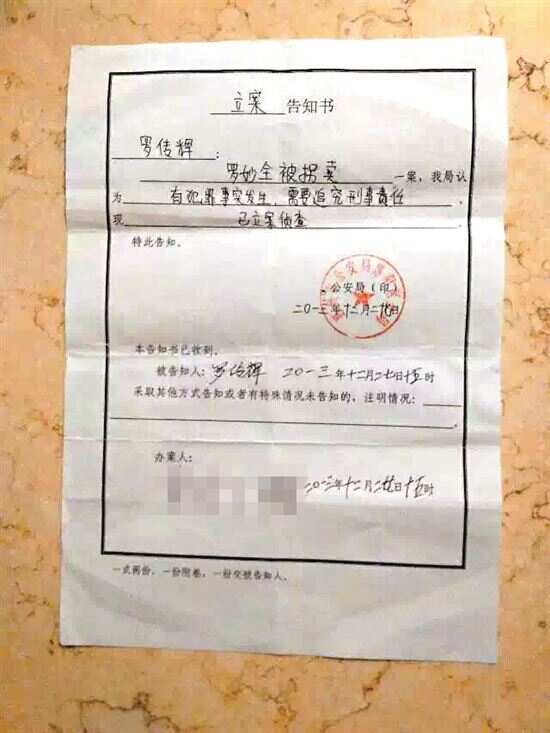 立案 告知书
罗传辉：
罗妙全被拐卖 一案，我局认
为 有犯罪事实发生，需要追究刑事责任
现 已立案侦查
特此告知。
公安局（印）
二〇一三年十二月二十七日
本告知书已收到。
被告知人：罗传辉 二〇一三年十二月二十七日十五时
采取其他方式告知或者有特殊情况未告知的，注明情况：
办案人：
二〇一三年十二月二十七日十五时
一式两份，一份附卷，一份交被告知人。